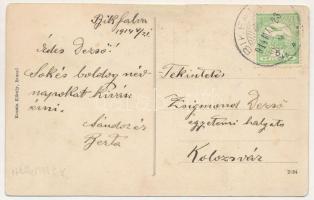 Bikfalva
1914 V/21
Édes Dezső!
Sok és boldog név-
napokat kiván-
Sándor és
Berta
Tekintetes
Zsigmond Dezső
egyetemi halgató
Kolozsvár